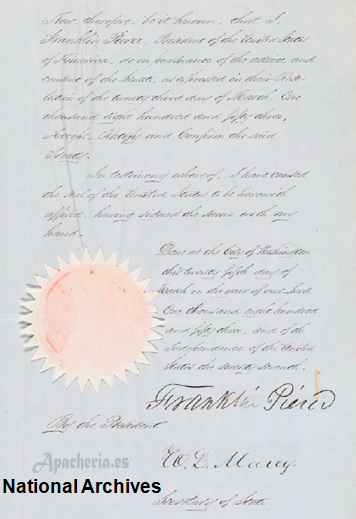 Now, therefore, be it known, that I,
Franklin Pierce, President of the United States
of America, do in pursuance of the advice and
consent of the Senate, as expressed in their Reso-
lution of the twenty third day of March, One
thousand eight hundred and fifty three,
Accept, Ratify and Confirm the said
Treaty.
In testimony whereof, I have caused
the seal of the United States to be herewith
affixed, having signed the same with my
hand.
Done at the City of Washington
this twenty fifth day of
March in the year of our Lord
One thousand eight hundred
and fifty three, and of the
Independence of the United
States the seventy seventh.
Franklin Pierce
By the President
W. L. Marcy.
Secretary of State
Apacheria.es
National Archives